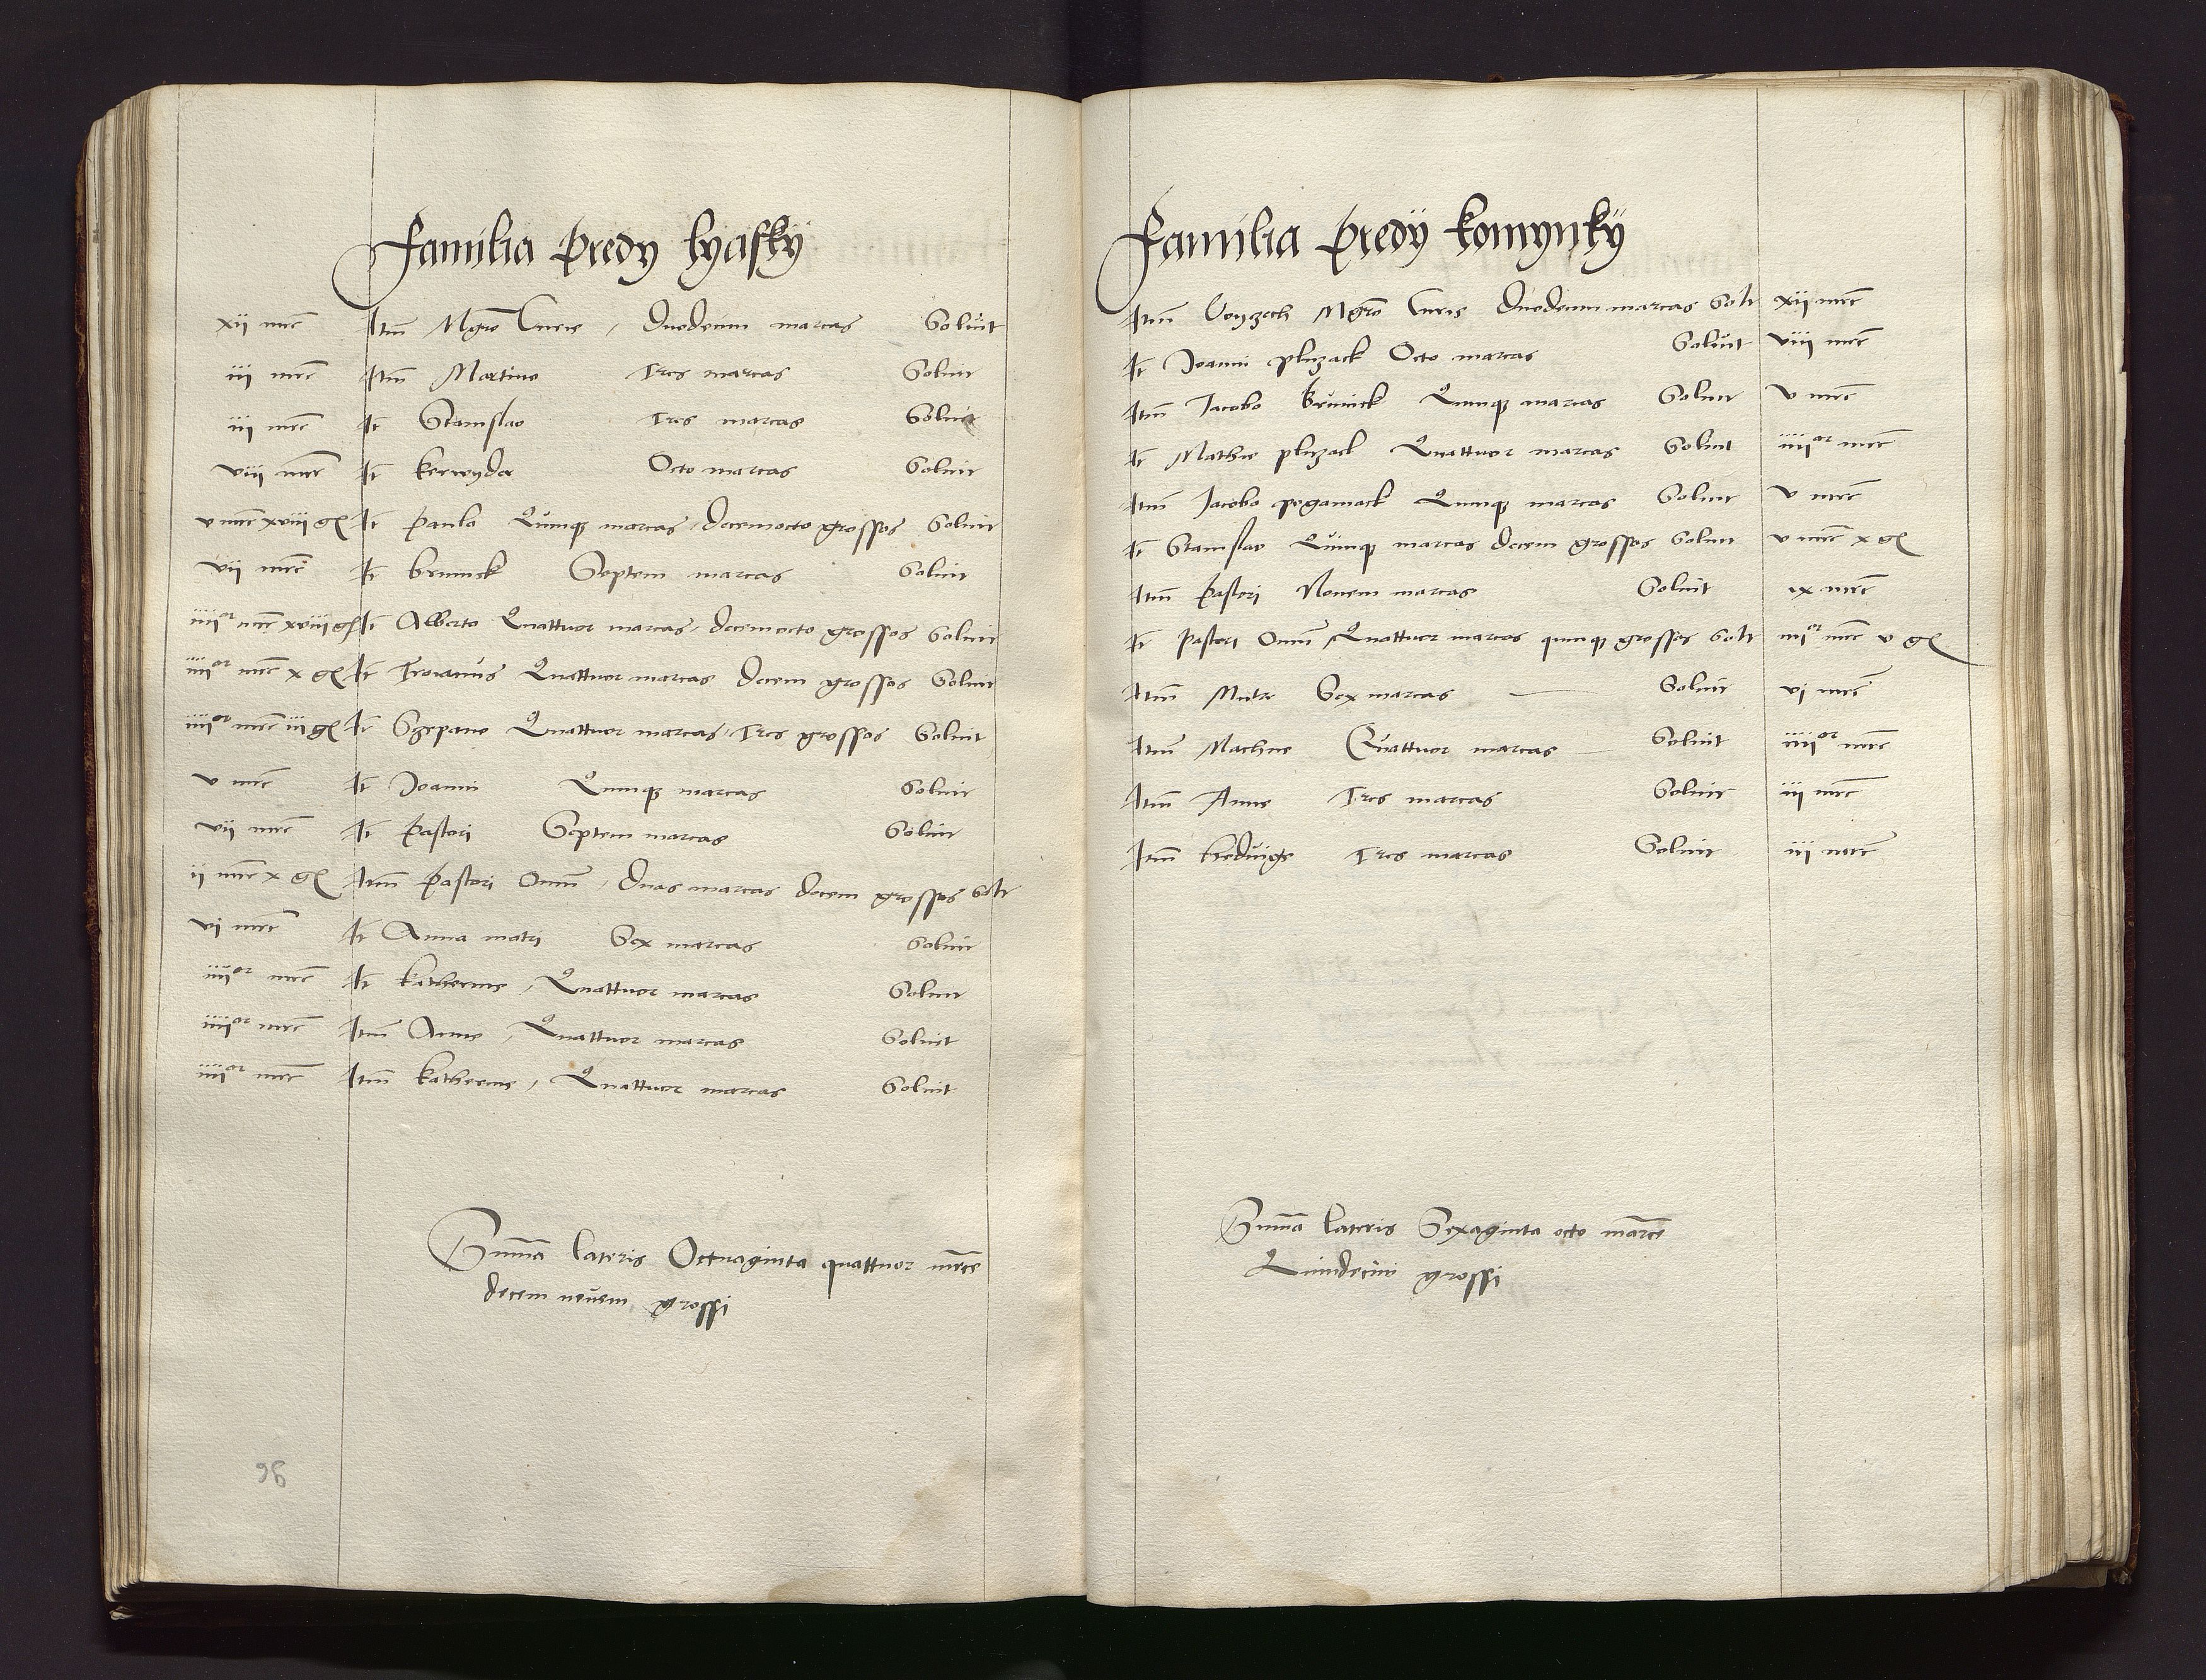 Familia predy lyasky
xii mrc Itm Mgro Curie / Duodecim marcas Soluit
iii mrc Itm Martino Tres marcas Soluit
iii mrc It Stanislao Tres marcas Soluit
viii mrc It kerwyda Octo marcas Soluit
v mrc xviii gs It Paulo Quinque marcas / decemocto grossos Soluit
vii mrc It brunick Septem marcas Soluit
iiiior mrc xviii gs It Alberto Quattuor marcas / decemocto grossos Soluit
iiiior mrc x gs It Troianus Quattuor marcas decem grossos Soluit
iiiior mrc iii gs It Sczepano Quattuor marcas / Tres grossos Soluit
v mrc It Joanni Quinque marcas Soluit
vii mrc It Pastori Septem marcas Soluit
ii mrc x gs Itm Pastori Ouium / Duas marcas decem grossos Solt
vi mrc It Anna matri Sex marcas Soluit
iiiior mrc It katherine / Quattuor marcas Soluit
iiiior mrc Itm Anne / Quattuor marcas Soluit
iiiior mrc Itm katherine / Quattuor marcas Soluit
Summa lateris Octuaginta quattuor mrce
decem nouem grossi
96
Familia predÿ komynkÿ
Itm Voyzech Mgro Curie Duodecim marcas Solt xii mrc
It Joanni pluzack Octo marcas Soluit viii mrc
Itm Jacobo Brunick Quinque marcas Soluit v mrc
It Mathie pluzack Quattuor marcas Soluit iiiior mrc
Itm Jacobo poganack Quinque marcas Soluit v mrc
It Stanislao Quinque marcas decem grossos Soluit v mrc x gs
Itm Pastori Nouem marcas Soluit ix mrc
It Pastori Ouium / Quattuor marcas quinque grossos Solt iiiior mrc v gs
Itm Matri Sex marcas Soluit vi mrc
Itm Machne Quattuor marcas Soluit iiiior mrc
Itm Anne Tres marcas Soluit iii mrc
Itm Heduige Tres marcas Soluit iii mrc
Summa lateris Sexaginta octo marce
Quindecim grossi